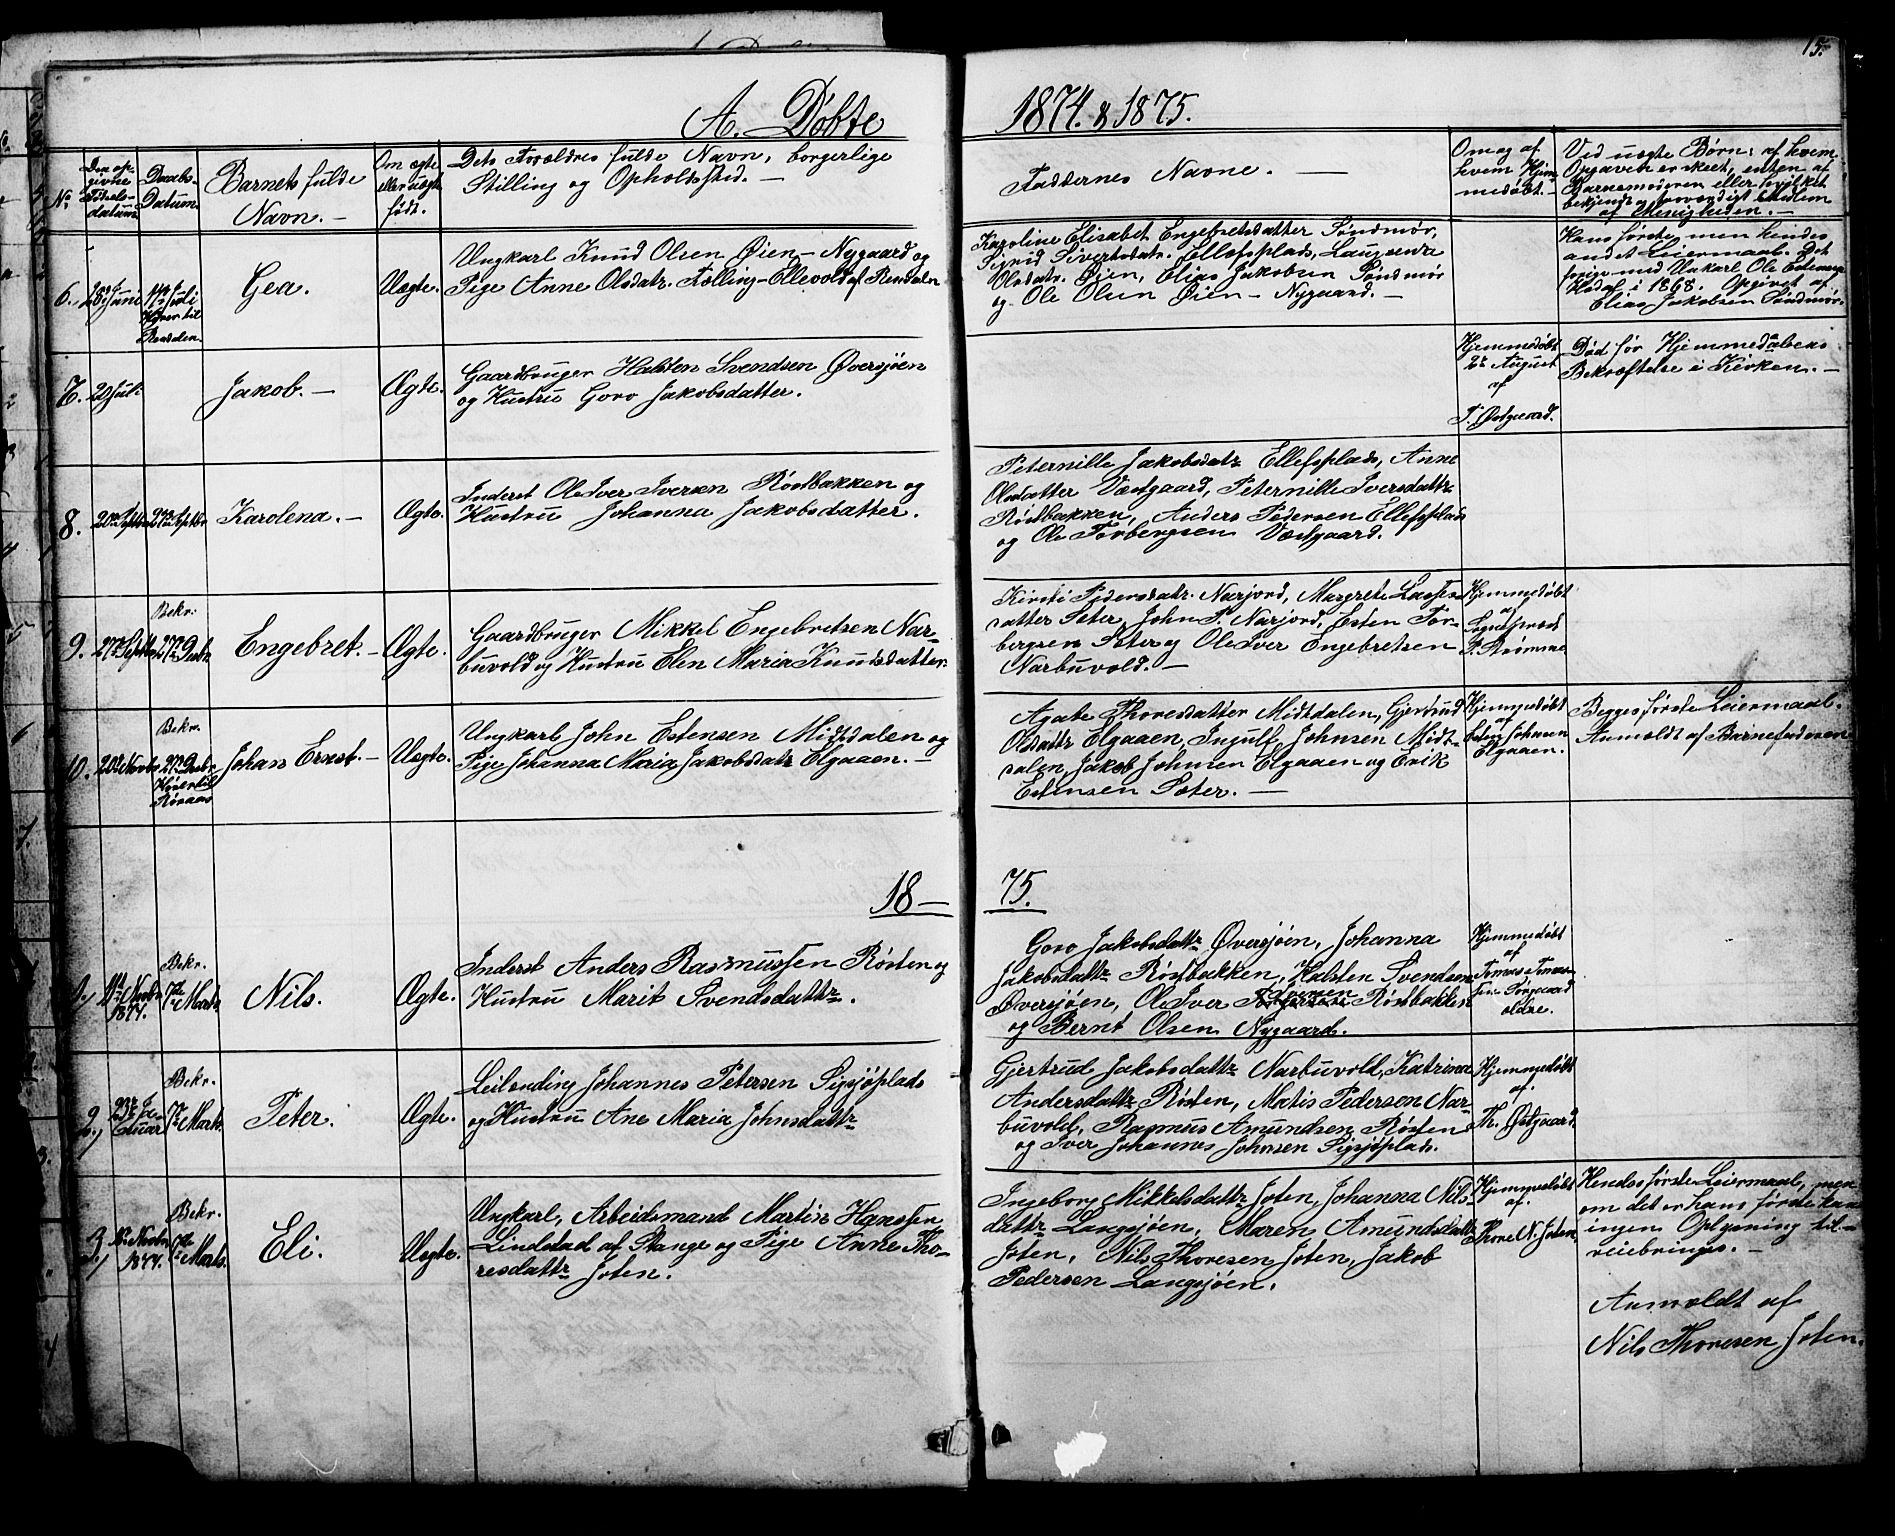 15.
A. Døbte
1874. & 1875.
No
Den op-
givne
Fødsels-
datum.
Daabs-
Datum.
Barnets fulde
Navn. —
Om ægte
eller uægte
født.
Dets Forældres fulde Navn, borgerlige
Stilling og Opholdssted. —
Faddernes Navne. —
Om og af
hvem Hjem-
medøbt. —
Ved uægte Børn: af hvem
Opgaven er skeet, enten af
Barnemoderen eller hvilket
bekjendt og troværdigt Medlem
af Menigheden. —
6.
28de Juni
Juli
Hører til
Rendalen.
Gea.
Uægte.
Ungkarl Knud Olsen Øien-Nygaard og
Pige Anne Olsdatr. Fælling-Ellevold af Rendalen
Karoline Elisabet Engebretsdatter Søndmør,
Sigrid Sivertsdatr. Ellefsplads, Laugsena
Olsdatr. Øien, Elias Jakobsen Søndmør
og Ole Olsen Øien-Nygaard. —
Hans første, men hendes
andet Leiermaal. Det
første med Unkarl Ole Estensen
Hodal i 1868. Opgivet af
Elias Jakobsen Søndmør.
7.
20 Juli
Jakob. —
Ægte.
Gaardbruger Halsten Svendsen Øversjøen
og Hustru Goro Jakobsdatter.
Hjemmedøbt
2de August
af
T. Østgaard.
Død før Hjemmedaabens
Bekræftelse i Kirken. —
8.
20de Septbr
27de Septbr
Karolena. —
Ægte.
Inderst Ole Iver Iversen Röstbakken og
Hustru Johanna Jakobsdatter.
Peternille Jakobsdatr Ellefsplads, Anne
Olsdatter Væstgaard, Peternille Iversdattr
Røstbakken, Anders Pedersen Ellefsplads
og Ole Torbergsen Væstgaard.
9.
27de Septbr
Bekr.
27de Decbr
Engebret. —
Ægte.
Gaardbruger Mikkel Engebretsen Nar-
buvold og Hustru Elen Maria Knudsdatter.
Kirsti Pedersdatr. Narjord, Margrete Lassesd-
atter Sæter, John P. Narjord, Esten Tor-
bergsen Sæter og Ole Iver Engebretsen
Narbuvold. —
Hjemmedøbt
af
Sogneprest
P. Strømme
10.
20de Novbr
Bekr.
27de Decbr
Hører til
Røraas
Johan Ernst. —
Uægte.
Ungkarl John Estensen Midtdalen og
Pige Johanna Maria Jakobsdatr Elgaaen. —
Agate Thoresdatter Midtdalen, Gjertrud
Olsdattr Elgaaen, Ingulf Johnsen Midt-
dalen, Jakob Johnsen Elgaaen og Erik
Estensen Sæter. —
Hjemmedøbt
af
Esten Johnsen
Elgaaen.
Begges første Leiermaal.
Anmeldt af Barnefaderen
18—
75.
1.
Novbr
1874.
Bekr.
7de Marts
Nils.
Ægte.
Inderst Anders Rasmussen Røsten og
Hustru Marit Svendsdattr.
Goro Jakobsdattr Øversjøen, Johanna
Jakobsdattr Røstbakken, Halsten Svendsen
Øversjøen, Ole Iver Iversen Røstbakken
og Bernt Olsen Nygaard.
Hjemmedøbt
af
Tomas Tomas-
sen Torgaard
ældre.
2.
Bekr.
7de Marts
Peter.
Ægte.
Leilending Johannes Petersen Sigsjøplads
og Hustru Ane Maria Johnsdattr
Gjertrud Jakobsdattr Narbuvold, Katrina
Andersdattr Røsten, Matis Pedersen Nar-
buvold, Rasmus Amundsen Røsten
og Iver Johannes Johnsen Sigsjøplads.
Hjemmedøbt
af.
Th. Østgaard
3.
Novbr
1874.
Bekr.
7de Marts.
Eli.
Uægte.
Ungkarl, Arbeidsmand Martin Hanssen
Lindstad af Stange og Pige Anne Tho-
resdattr Joten.
Ingeborg Mikkelsdattr Joten, Johanna Nils-
dattr Langsjøen, Maren Amundsdattr
Joten, Nils Thoresen Joten, Jakob
Pedersen Langsjøen.
Hjemmedøbt
af
Thore N. Joten,
Hendes første Leiermaal, men
om det er hans første kan
ingen Oplysning til-
veiebringes. —
Anmeldt af
Nils Thoresen Joten.